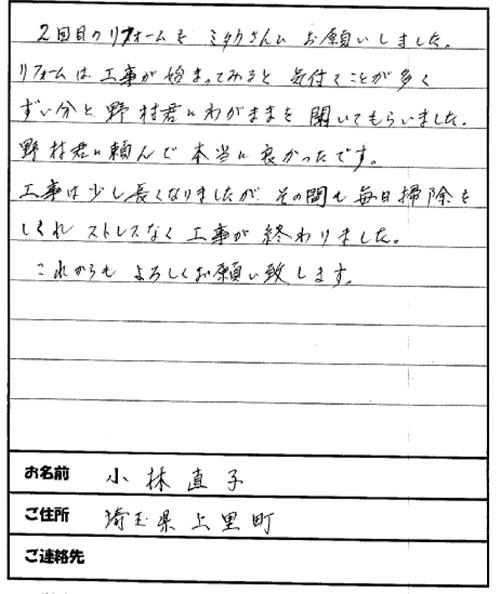 2回目のリフォームを ミタカさんに お願いしました。
リフォームは 工事が 始まってみると 気付くことが多く
ずい分と 野村君に わがままを 聞いてもらいました。
野村君に頼んで 本当に良かったです。
工事は少し長くなりましたが、その間も 毎日掃除を
してくれ ストレスなく 工事が 終わりました。
これからも よろしくお願い致します。
お名前 小林直子
ご住所 埼玉県上里町
ご連絡先